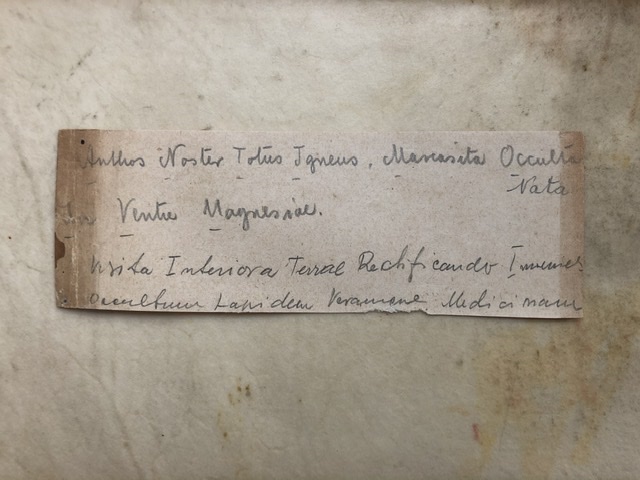 Anthos Noster Totus Igneus, Marcasita Occulta
Nata
In Ventre Magnesiae.
Visita Interiora Terrae Rectificando Invenies
Occultum Lapidem Veramque Medicinam